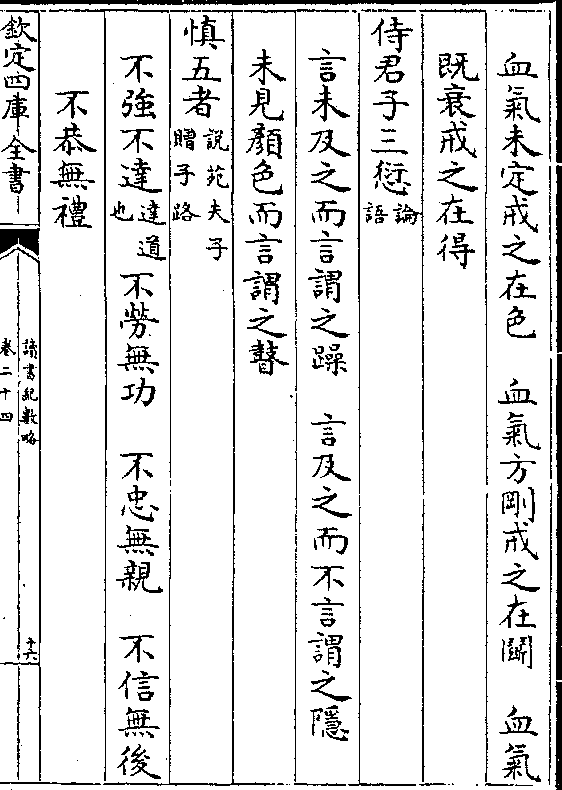 血氣未定戒之在色　血氣方剛戒之在鬬　血氣
既衰戒之在得
侍君子三愆論語
言未及之而言謂之躁　言及之而不言謂之隱
未見顏色而言謂之瞽
慎五者說苑夫子贈子路
不強不達達道也　不勞無功　不忠無親　不信無後
不恭無禮
欽定四庫全書
讀書紀數略
卷二十四
十六